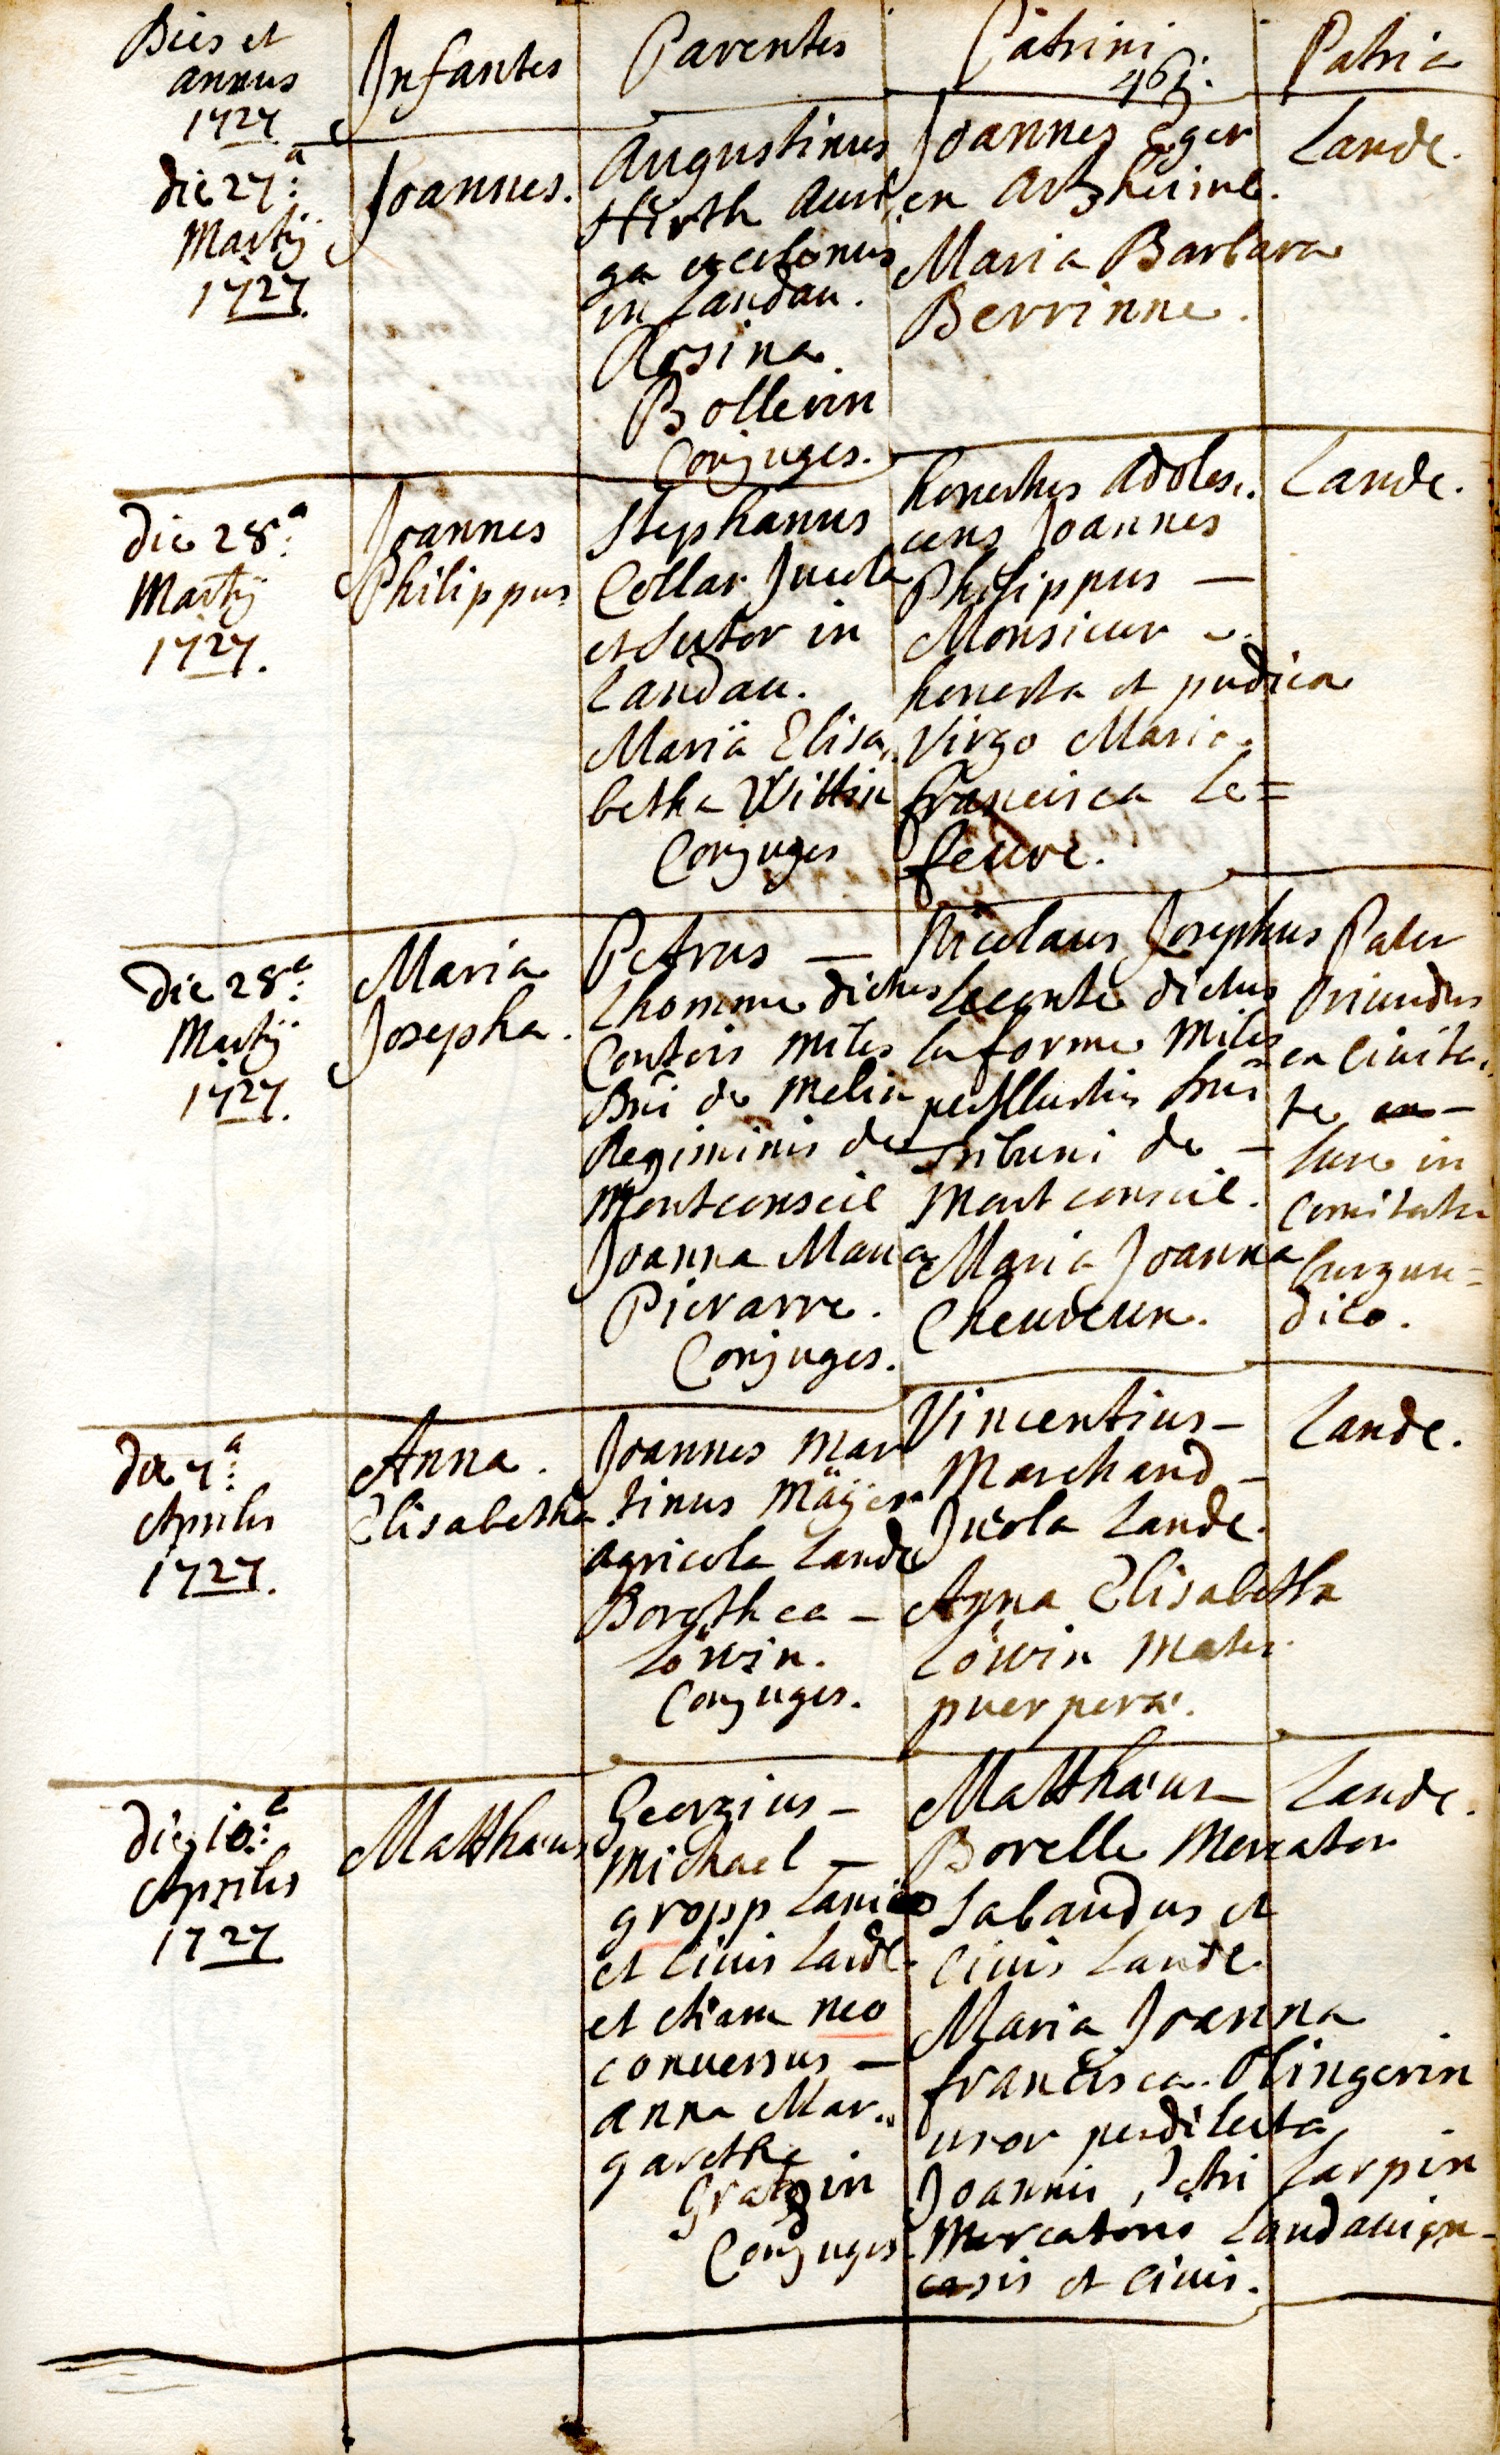 Dies et
annus
1727
Infantes
Parentes
Patrini
461.
Patria
die 27:a
Martij
1727.
Joannes.
Augustinus
Hirth auri,
ga
in Landau.
Rosina
Bollerin
Conjuges.
Joannes Eger
en Artzheime.
Maria Barbara
Berrinne.
Lande.
die 28:a
Martij
1727.
Joannes
Philippus
Stephanus
Collar Incola
et sutor in
Landau.
Maria Elisa,,
betha Wittin
Conjuges
honestus adoles,,
cens Joannes
Philippus —
Monsieur
honesta et pudica
Virgo Maria
francisca le=
feure.
Lande.
die 28:a
Martij
1727.
Maria
Josepha.
Petrus —
Lhomme dictus
Contois miles
Dni de Melin
Regiminis de
Montconseil
Joanna Maria
Pierarre.
Conjuges.
Nicolaus Josephus
Leconte dictus
la forme Miles
perillustris Dni
Tribuni de —
Mont conseil.
Maria Joanna
Cheureux.
Pater
Oriundus
ex Ciuita,,
te —
Lure in
Comitatu
burgun=
dico.
die 7:a
Aprilis
1727.
Anna.
Elisabetha
Joannes Mar
tinus Mäÿer
agricola Lande
Dorothea —
Löwin.
Conjuges.
Vincentius —
Marchand —
Incola Lande.
Anna Elisabetha
Löwin Mater
puerperæ.
Lande.
die 10:a
Aprilis
1727
Matthæus
Georgius —
Michael —
gropp Lanio
et Ciuis Lande.
et etiam neo
conuersus —
anna Mar,,
garetha
Gratzin
Conjuges
Matthæus —
Borelle Mercator
Sabaudus et
Ciuis Lande.
Maria Joanna
francisca Olingerin
uxor perdilecta
Joannis Petri Larpin
Mercatoris Landauien
casis et Ciuis.
Lande.